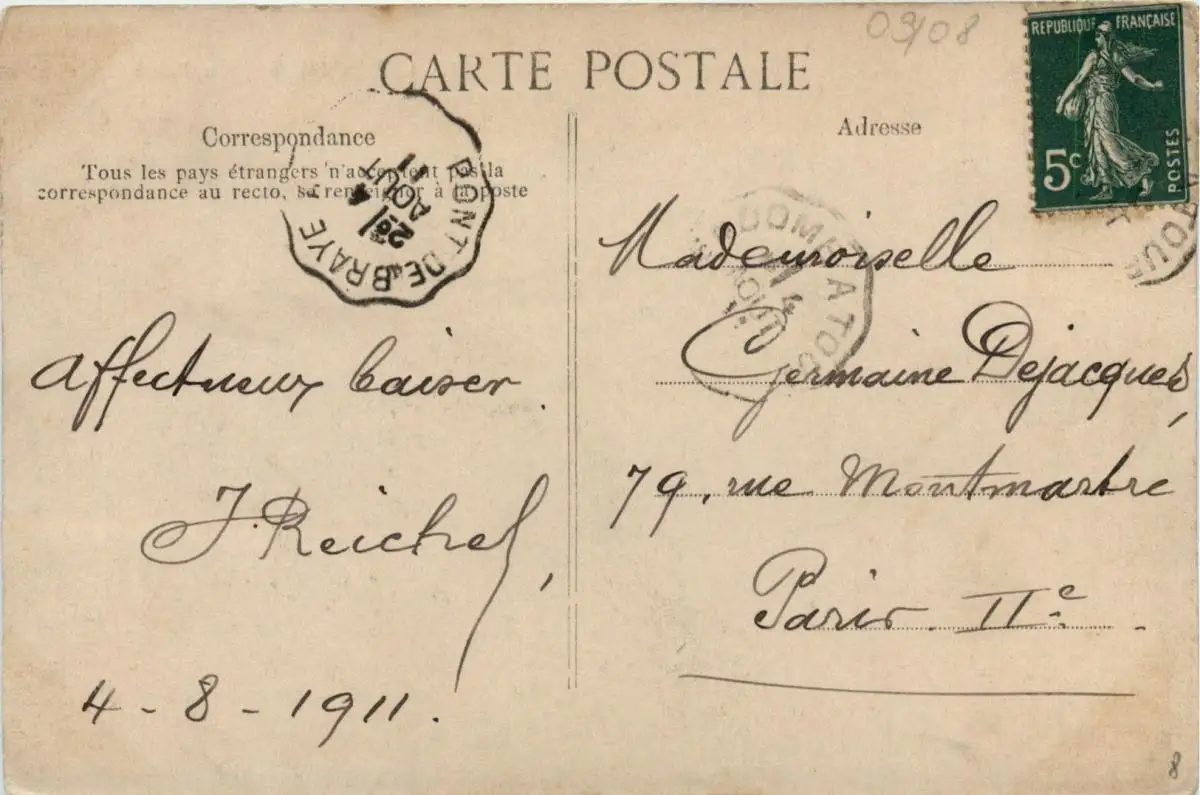 09/08
CARTE POSTALE
REPUBLIQUE FRANÇAISE
5c
POSTES
Correspondance
Tous les pays étrangers n'acceptent pas la
correspondance au recto, se renseigner à la poste
PONT-DE-BRAYE
4
AOUT
11
Affectueux baiser.
J. Reichel,
4-8-1911.
Adresse
Mademoiselle
Germaine Dejacques,
79, rue Montmartre
Paris IIe.
8